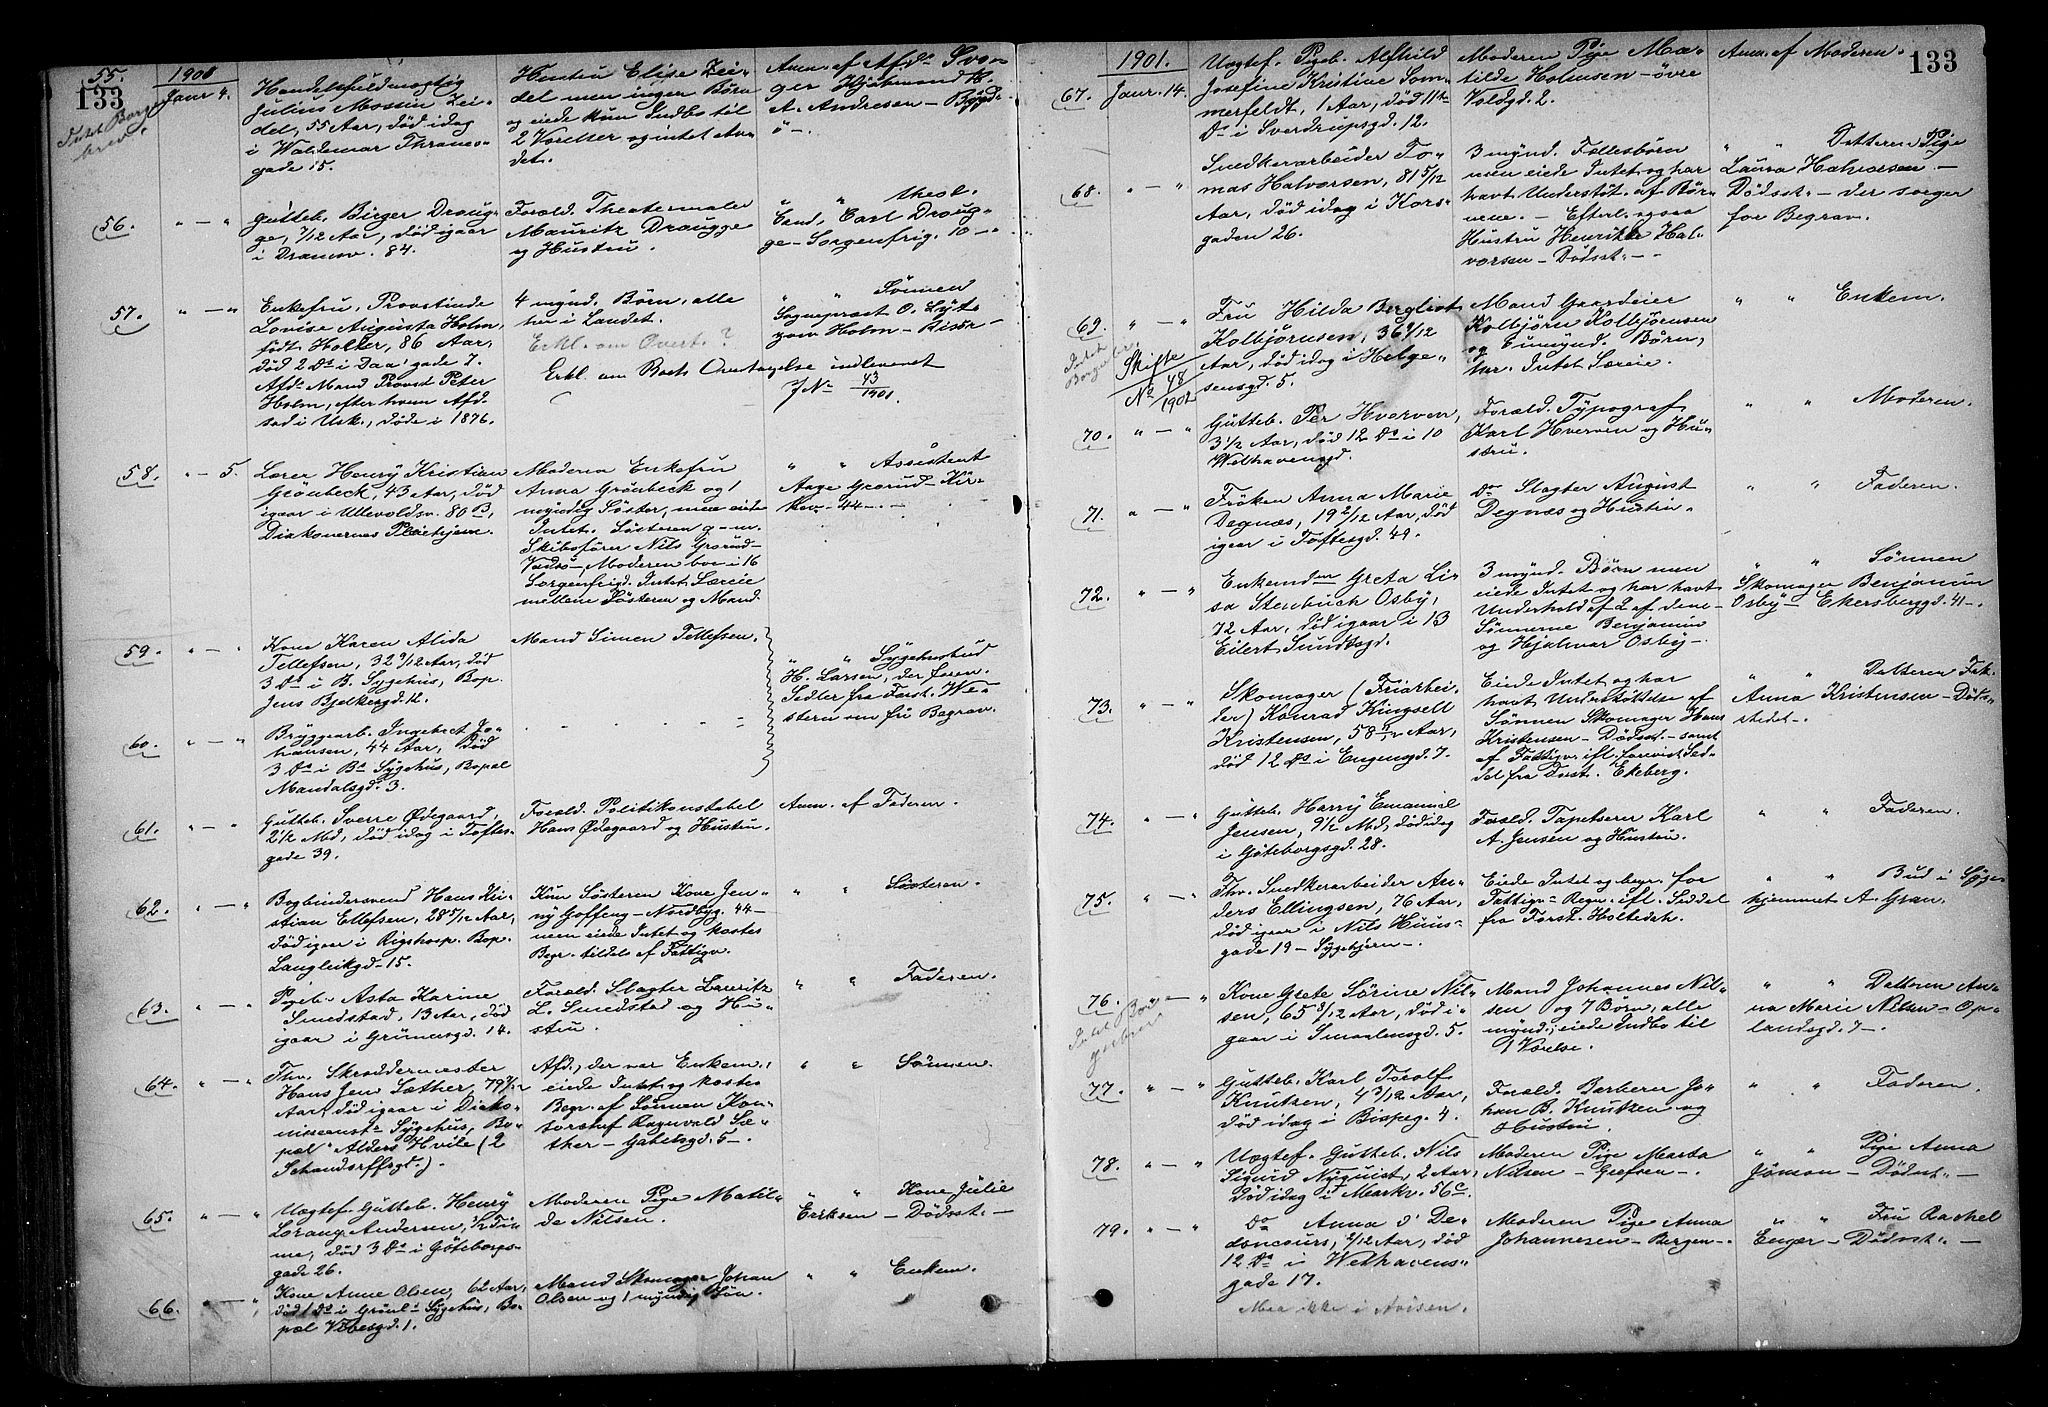 133
55.
1901
Janr 4.
Intet Borger
brev.
Handelsfuldmægtig
Julius Mossin Zei-
del, 55 Aar, död idag
i Waldemar Thranes-
gade 15.
Hustru Elise Zei-
del men ingen Börn
og eiede kun Indbo til
2 Værelser og intet An-
det.
Anm. af Afdø Svo-
ger
A. Andresen - Bygd-
ö -.
56.
" - "
Gutteb. Birger Draug-
ge, 7/12 Aar, död igaar
i Dramsv. 84.
Foræld. Theatermaler
Mauritz Draugge
og Hustru.
" " theol.
Cand. Carl Draug-
ge - Sorgenfrig. 10 -.
57.
" - "
Enkefru, Provstinde
Lovise Augusta Holm,
födt Holter, 86 Aar,
död 2 Ds i Daas gade 7.
Afdø Mand Provst Peter
Holm, efter hvem Afd.
sad i Usk., döde i 1876.
4 mynd. Börn, alle
her i Landet.
Erkl. om Overt. ?
Erkl. om Boets Overtagelse indleveret
J No 43/1901.
" " Sönnen
Sogneprest O. Lyt-
zow Holm -
58.
" - 5.
Lærer Henry Kristian
Grönbeck, 43 Aar, död
igaar i Ullevoldsv. 80 B,
Diakonernes Pleiehjem.
Moderen Enkefru
Anna Grönbeck og 1
myndig Söster, men eiede
Intet. Sösteren g. m.
Skibsförer Nils Grorud -
Vadsö -, Moderen bor i 16
Sorgenfrigd. Intet Særeie
mellem Sösteren og Mand.
" " Assistent
Aage Grorud - Kir-
kev. 44 -.
59.
" - "
Kone Karen Alida
Tellefsen, 32 9/12 Aar, död
3 Ds i B. Sygehus, Bop.
Jens Bjelkesgd. 12.
Mand Simen Tellefsen.
" " Sygehusbud
H. Larsen, der forev.
Sedler fra Forst. We-
stern om fri Begrav.
60.
" - "
Bryggearb. Ingebret Jo-
hansen, 44 Aar, död
3 Ds i Bs Sygehus, Bopæl
Mandalsgd. 3.
61.
" - "
Gutteb. Sverre Ödegaard,
2 1/2 Md., död idag i Toftes-
gade 39.
Foræld. Politikonstabel
Hans Ödegaard og Hustru.
Anm. af Faderen.
62.
" - "
Bogbindersvend Hans Kri-
stian Ellefsen, 28 5/12 Aar,
död igaar i Rigshosp. Bop.
Langleikgd - 15.
Kun Sösteren Kone Jen-
ny Goffeng - Nordbyg. 44 -
men eiede Intet og kostes
Begr. tildels af Fattigv.
" " Sösteren.
63.
" - "
Pigeb. Asta Karine
Smedstad, 13 Aar, död
igaar i Grünersgd. 14.
Foræld. Slagter Lauritz
L. Smedstad og Hu-
stru.
" " Faderen.
64.
" - "
Fhv. Skræddermester
Hans Jen Sæther, 79 7/12
Aar, död igaar i Diako-
nisseanst. Sygehus, Bo-
pæl "Alders Hvile" (2
Schandorffsgd.).
Afd., der var Enkem.,
eiede Intet og kostes
Begr. af Sönnen Kon-
torchef Ragnvald Sæ-
ther - Gabelsgd. 5 -.
" " Sönnen.
65.
" - "
Uægtef. Gutteb. Henry
Lorang Andersen, 1/2 Ti-
me, död 3 Ds i Göteborgs-
gade 26.
Moderen Pige Matil-
de Nilsen.
" " Kone Julie
Eriksen - Dödsst. -
66.
" - "
Kone Anne Olsen, 62 Aar,
död 1 Ds i Grönl. Sygehus, Bo-
pæl Vibesgd. 1.
Mand Skomager Johan
Olsen og 1 myndig Sön.
" " Enkem.
133
1901.
67.
Janr. 14.
Uægtef. Pigeb. Alfhild
Josefine Kristine Som-
merfeldt, 1 Aar, död 11te
Ds i Sverdrupsgd. 12.
Moderen Pige Ma-
tilde Holmsen - övre
Voldgd. 2.
Anm. af Moderen.
68.
" - "
Snedkerarbeider To-
mas Halvorsen, 81 5/12
Aar, död idag i Kors-
gaden 26.
3 mynd. Fællesbörn
men eiede Intet og har
havt Understöt. af Bör-
nene. - Efterl. ogsaa
Hustru Henrikke Hal-
vorsen - Dödsst. -
" " Datteren Pige
Laura Halvorsen -
Dödsst. - der sörger
for Begrav.
69.
" - "
Intet
Borgerbr.
Skifte
No 48/1902
Fru Hilda Bergliot
Kolbjörnsen, 36 9/12
Aar, död idag i Helge-
sensgd. 5.
Mand Gaardeier
Kolbjörn Kolbjörnsen
og Börn,
har Intet Særeie.
" " Enkem.
70.
" - "
Gutteb. Per Hverven,
3 1/2 Aar, död 12 Ds i 10
Welhavensgd.
Foræld. Typograf
Karl Hverven og Hu-
stru.
" " Moderen.
71.
" - "
Fröken Anna Marie
Degnæs, 19 2/12 Aar, död
igaar i Toftesgd. 49.
Do Slagter August
Degnæs og Hustru.
" " Faderen.
72.
" - "
Enkemdm Greta Li-
sa Stenbuck Osby,
72 Aar, död igaar i 13
Eilert Sundtsgd.
3 mynd. Börn men
eiede Intet og har havt
Underhold af 2 af dem -
Sönnerne Benjamin
og Hjalmar Osby -.
" " Sönnen
Skomager Benjamin
Osby - Ekersberggd. 41 -.
73.
" - "
Skomager (Friarbei-
der) Konrad Kingsell
Kristensen, 58 11/12 Aar,
död 12 Ds i Engensgd. 7.
Eiede Intet og har
havt Understöttelse af
Sönnen Skomager Hans
Kristensen - Dödsst. - samt
af Fattigv. ifl. forevist Sed-
del fra Forst. Ekeberg.
" " Datteren Frk.
Anna Kristensen - Döds-
stedet -.
74.
" - "
Gutteb. Harry Emanuel
Jensen, 9 1/2 Md, död idag
i Göteborgsgd. 28.
Foræld. Tapetserer Karl
A. Jensen og Hustru.
" " Faderen.
75.
" - "
Fhv. Snedkerarbeider An-
ders Ellingsen, 76 Aar,
död igaar i Nils Huus-
gade 19 - Sygehjem -.
Eiede Intet og begr. for
Fattigv. Regn. ifl. Seddel
fra Forst. Holtedah.
" " Bud i Syge-
hjemmet A. Gran.
76.
" - "
Intet Bor-
gerbrev
Kone Grete Sörine Nil-
sen, 65 8/12 Aar, död i-
gaar i Smaalensgd. 5.
Mand Johannes Nil-
sen og 7 Börn, alle
mynd., eiede Indbo til
1 Værelse.
" " Datteren An-
na Marie Nilsen - Op-
landsgd. 7 -.
77.
" - "
Gutteb. Karl Torolf
Knutzen, 4 3/12 Aar,
död idag i Bispeg. 4.
Foræld. Barberer Jo-
han B. Knutzen og
Hustru.
" " Faderen.
78.
" - "
Uægtef. Gutteb. Nils
Sigurd Nyquist, 2 Aar,
Död idag i Markv. 56 c.
Moderen Pige Marta
Nilsen - Grefsen -.
" " Pige Anna
Jönson - Dödsst. -
79.
" - "
Do Anna d' De-
doncours, 2/12 Aar, död
12 Ds i Welhavens-
gade 17.
Maa ikke i Avisen.
Moderen Pige Anna
Johannesen - Bergen -.
" " Fru Rachel
Enger - Dödsst. -